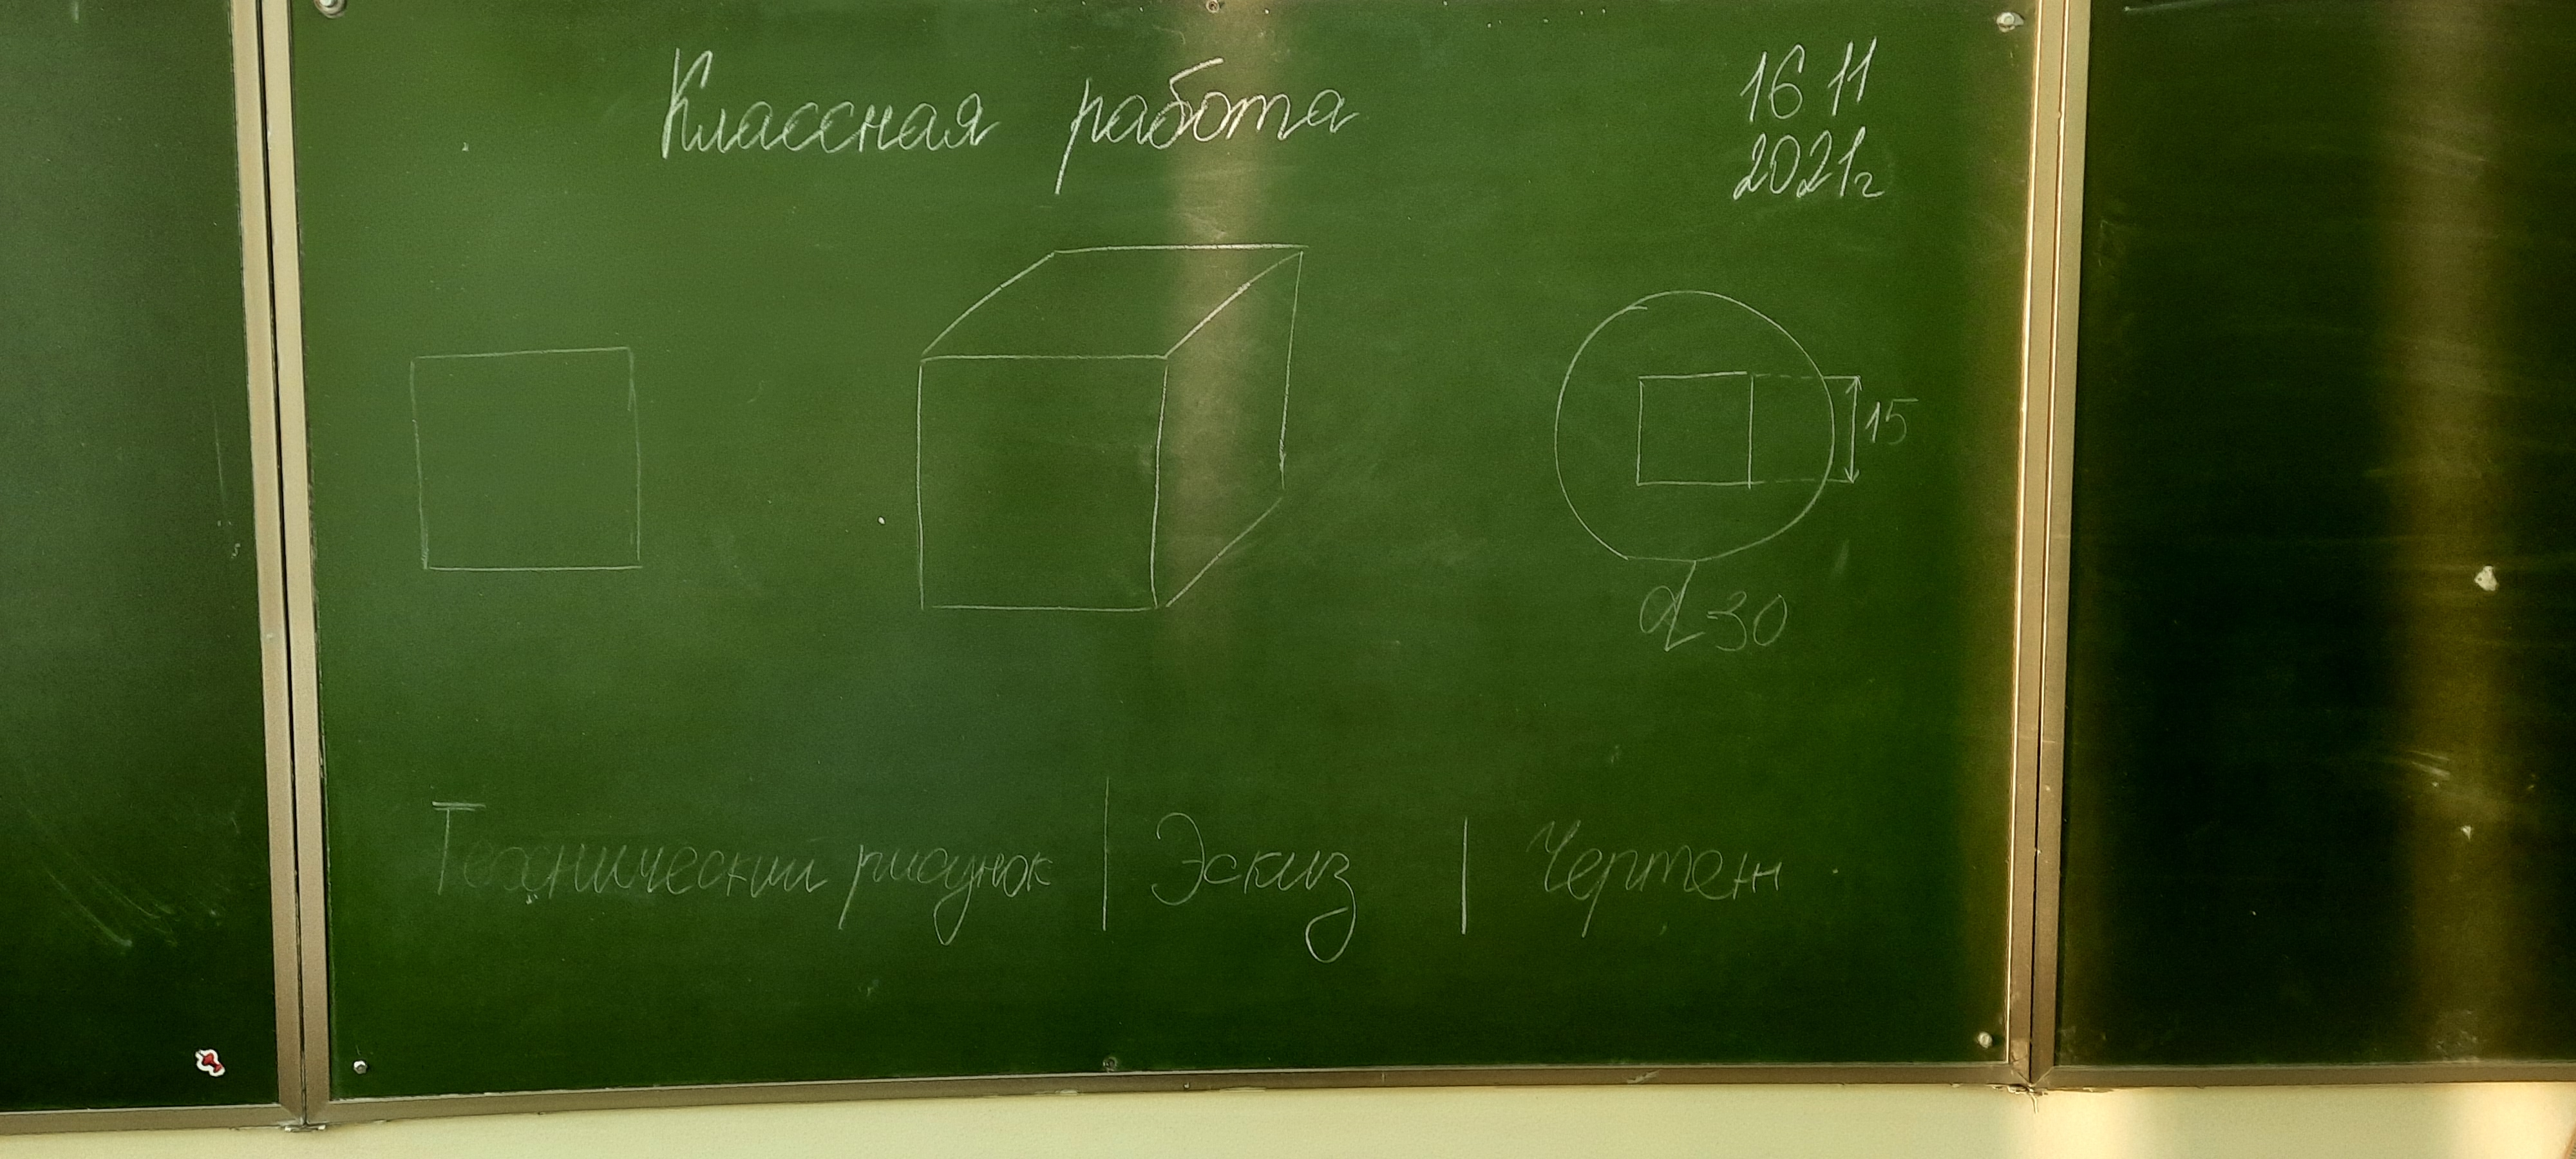 Классная работа
16 11
2021г
15
d 30
Технический рисунок | Эскиз | Чертеж